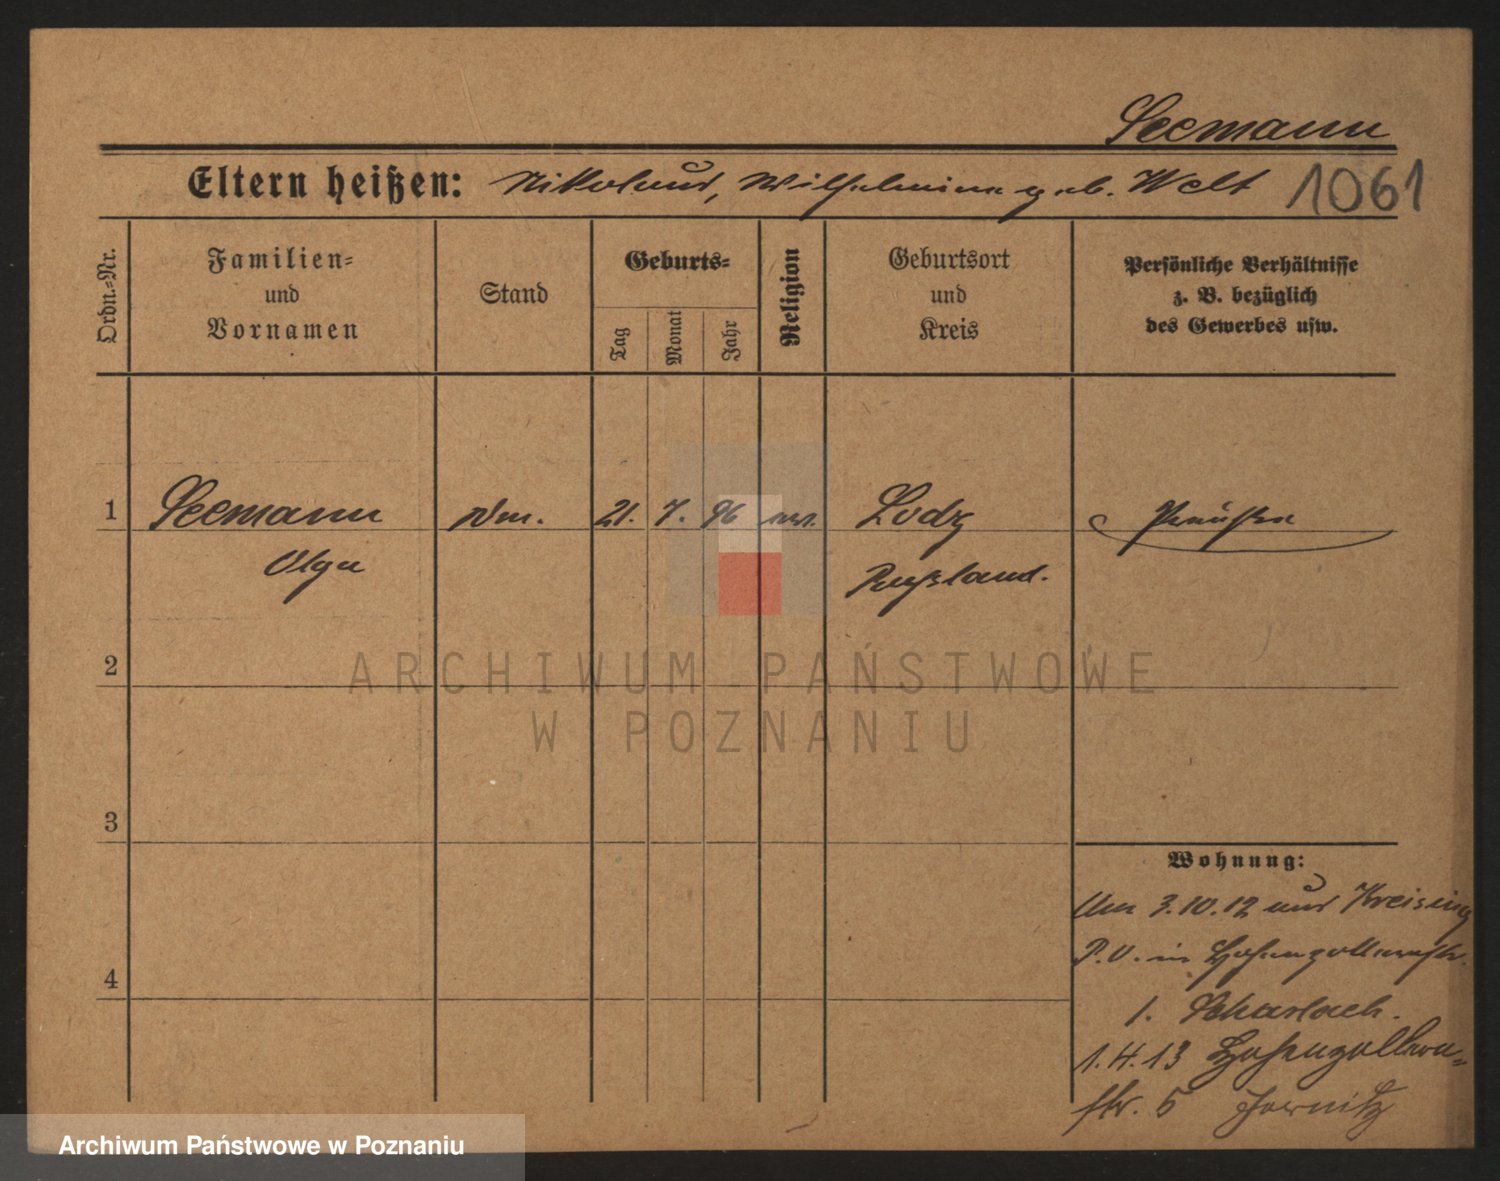 Seemann
Eltern heißen: Nikolaus, Wilhelmine geb. Welt 1061
Ordn.-Nr.
Familien-
und
Vornamen
Stand
Geburts-
Tag
Monat
Jahr
Religion
Geburtsort
und
Kreis
Persönliche Verhältnisse
z. B. bezüglich
des Gewerbes usw.
1 Seemann 21. 7. 96 Lodz Preußen
Olga Rußland.
2
ARCHIWUM PAŃSTWOWE
W POZNANIU
3
Wohnung:
3.10.12 aus Kreising
P.O. in Hohenzollernstr.
1. Scharlach.
1.4.13 Hohenzollern-
4
str. 5
Archiwum Państwowe w Poznaniu